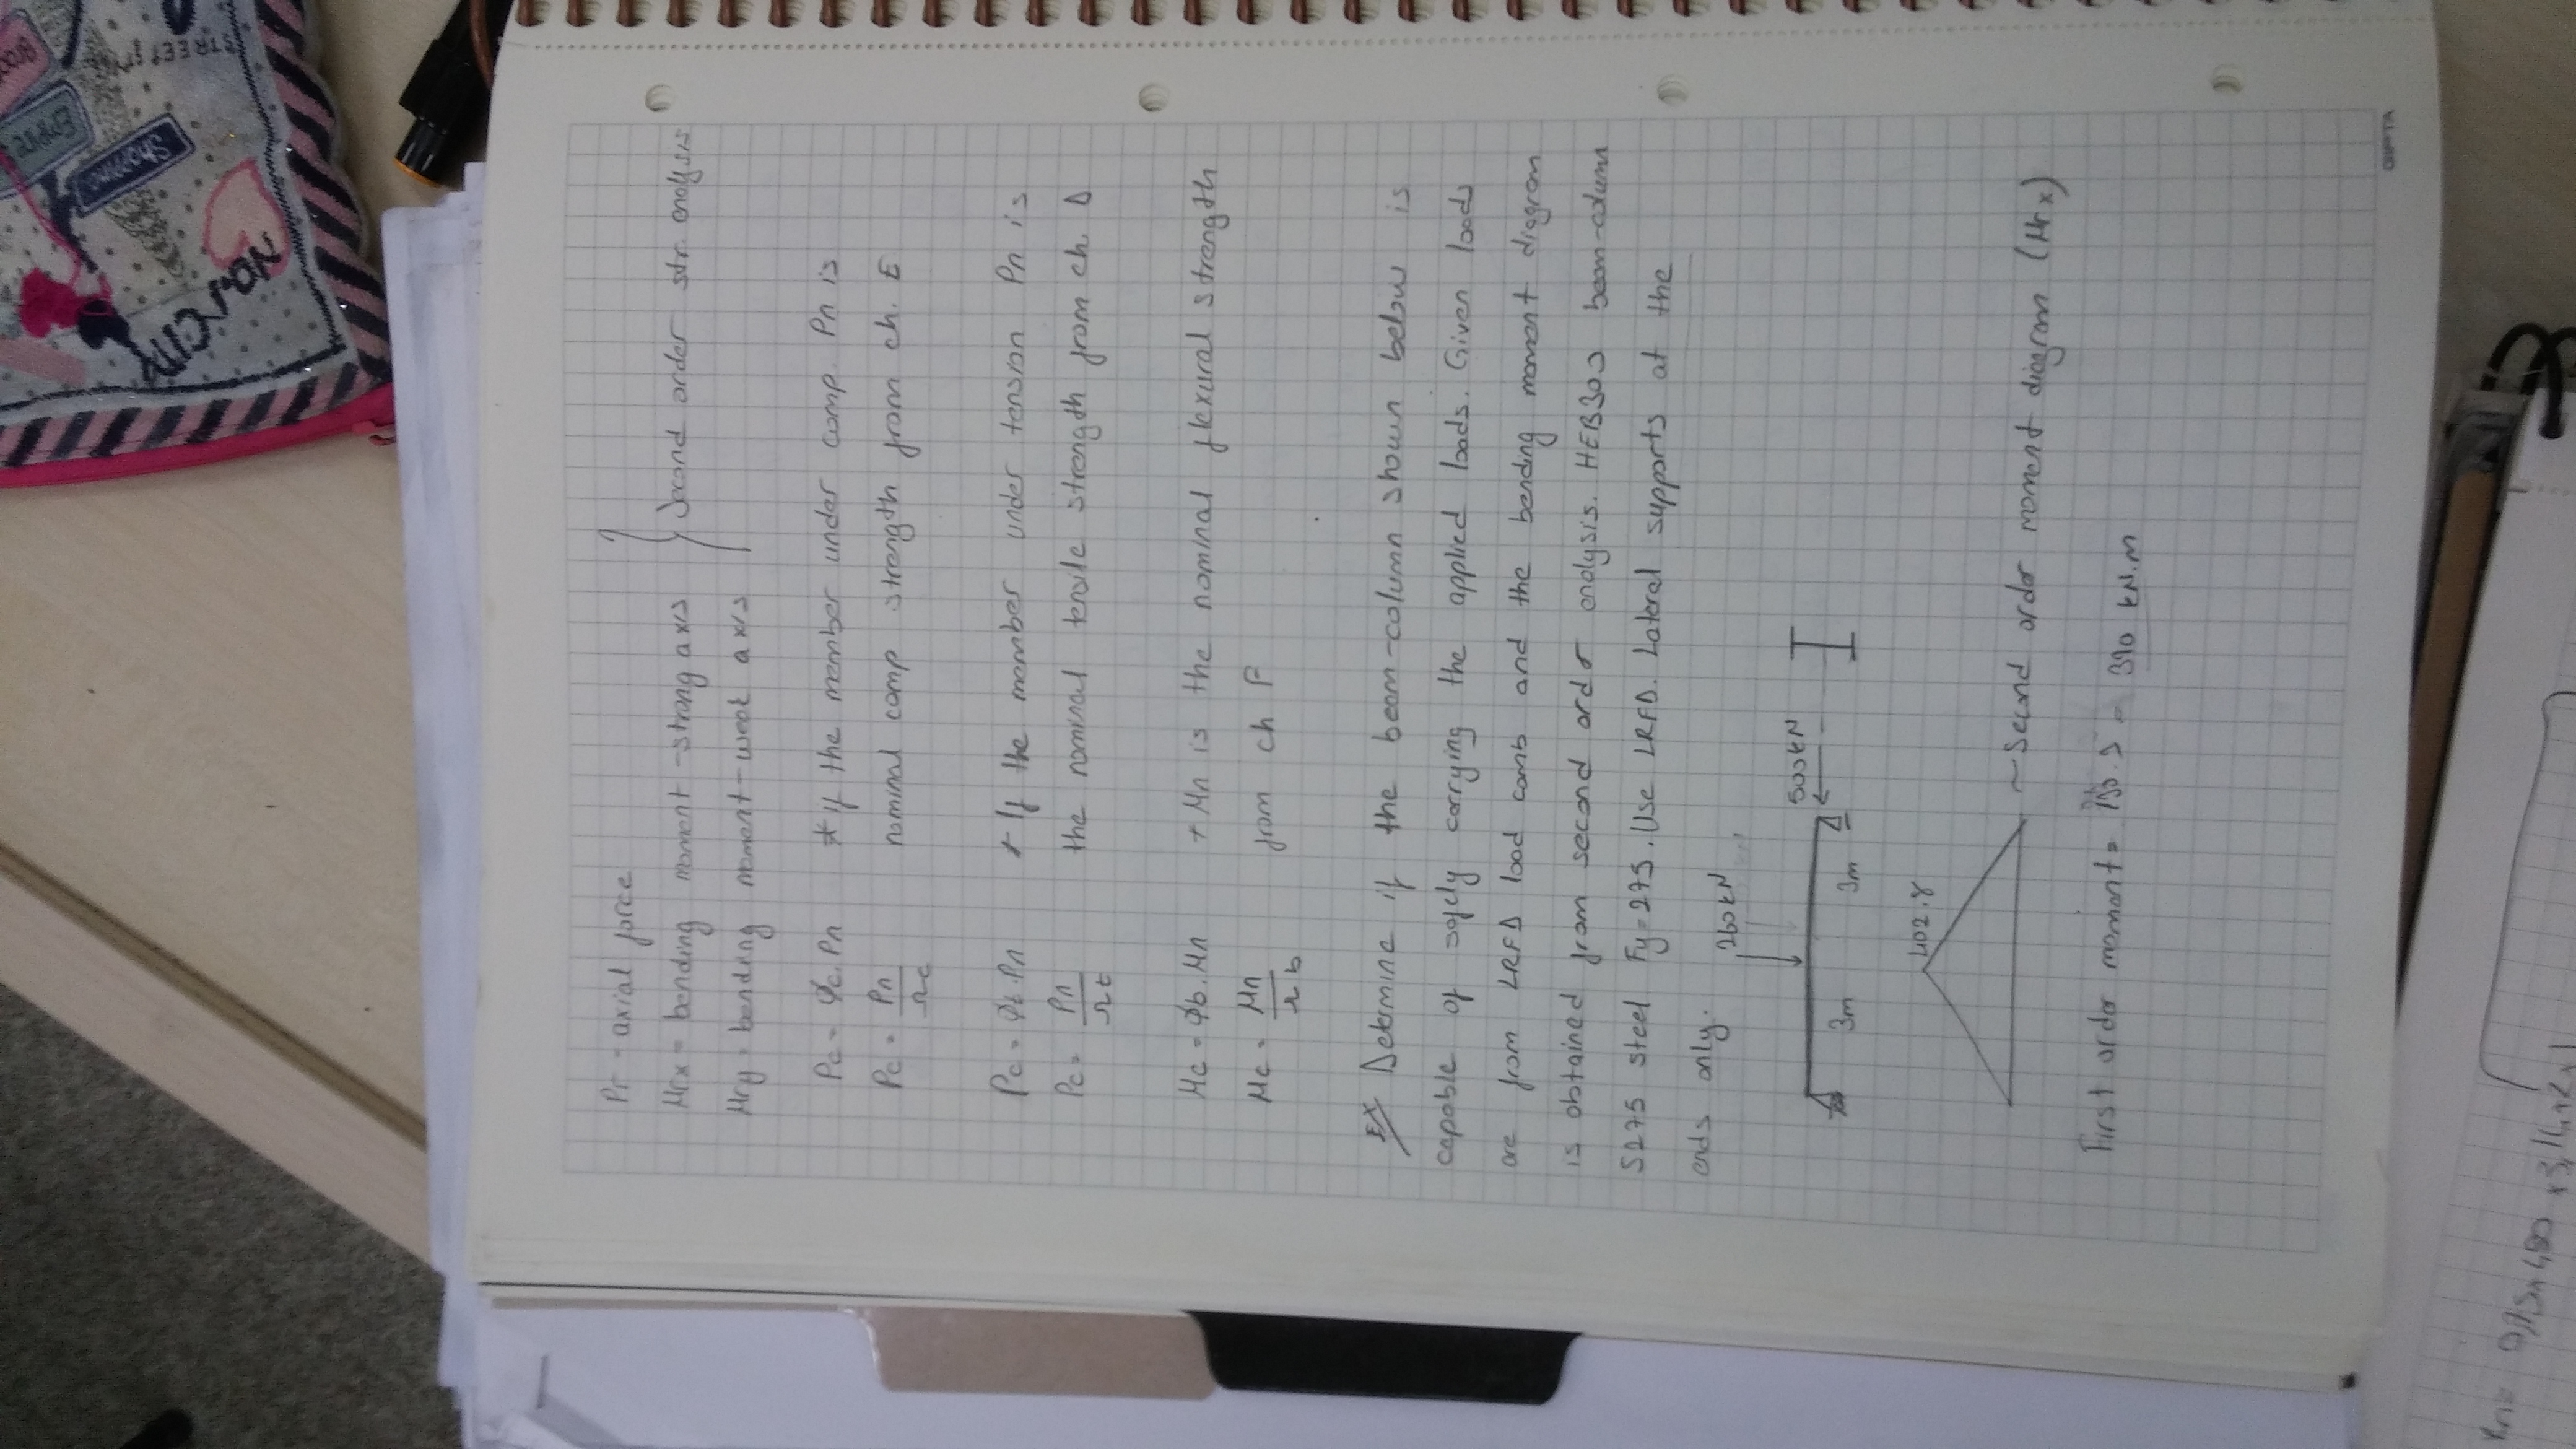 Empire
Broo
Shopping
STREET
NewYorCITY
Pr = axial force
Mrx = bending moment - strong axis
Second order str. analysis
Mry = bending moment - weak axis
Pc = φc.Pn * if the member under comp. Pn is
Pc = Pn/Ωc nominal comp strength from ch. E
Pc = φt.Pn * If the member under tension Pn is
Pc = Pn/Ωt the nominal tensile strength from ch. D
Mc = φb.Mn * Mn is the nominal flexural strength
Mc = Mn/Ωb from ch F
Ex Determine if the beam-column shown below is
capable of safely carrying the applied loads. Given loads
are from LRFD load comb and the bending moment diagram
is obtained from second order analysis. HEB300 beam-column
S275 steel Fy=275. Use LRFD. Lateral supports at the
ends only.
260kN
500kN
3m 3m
402.8
~Second order moment diagram (Mrx)
First order moment = 130.3 = 390 kN.m
GIPTA